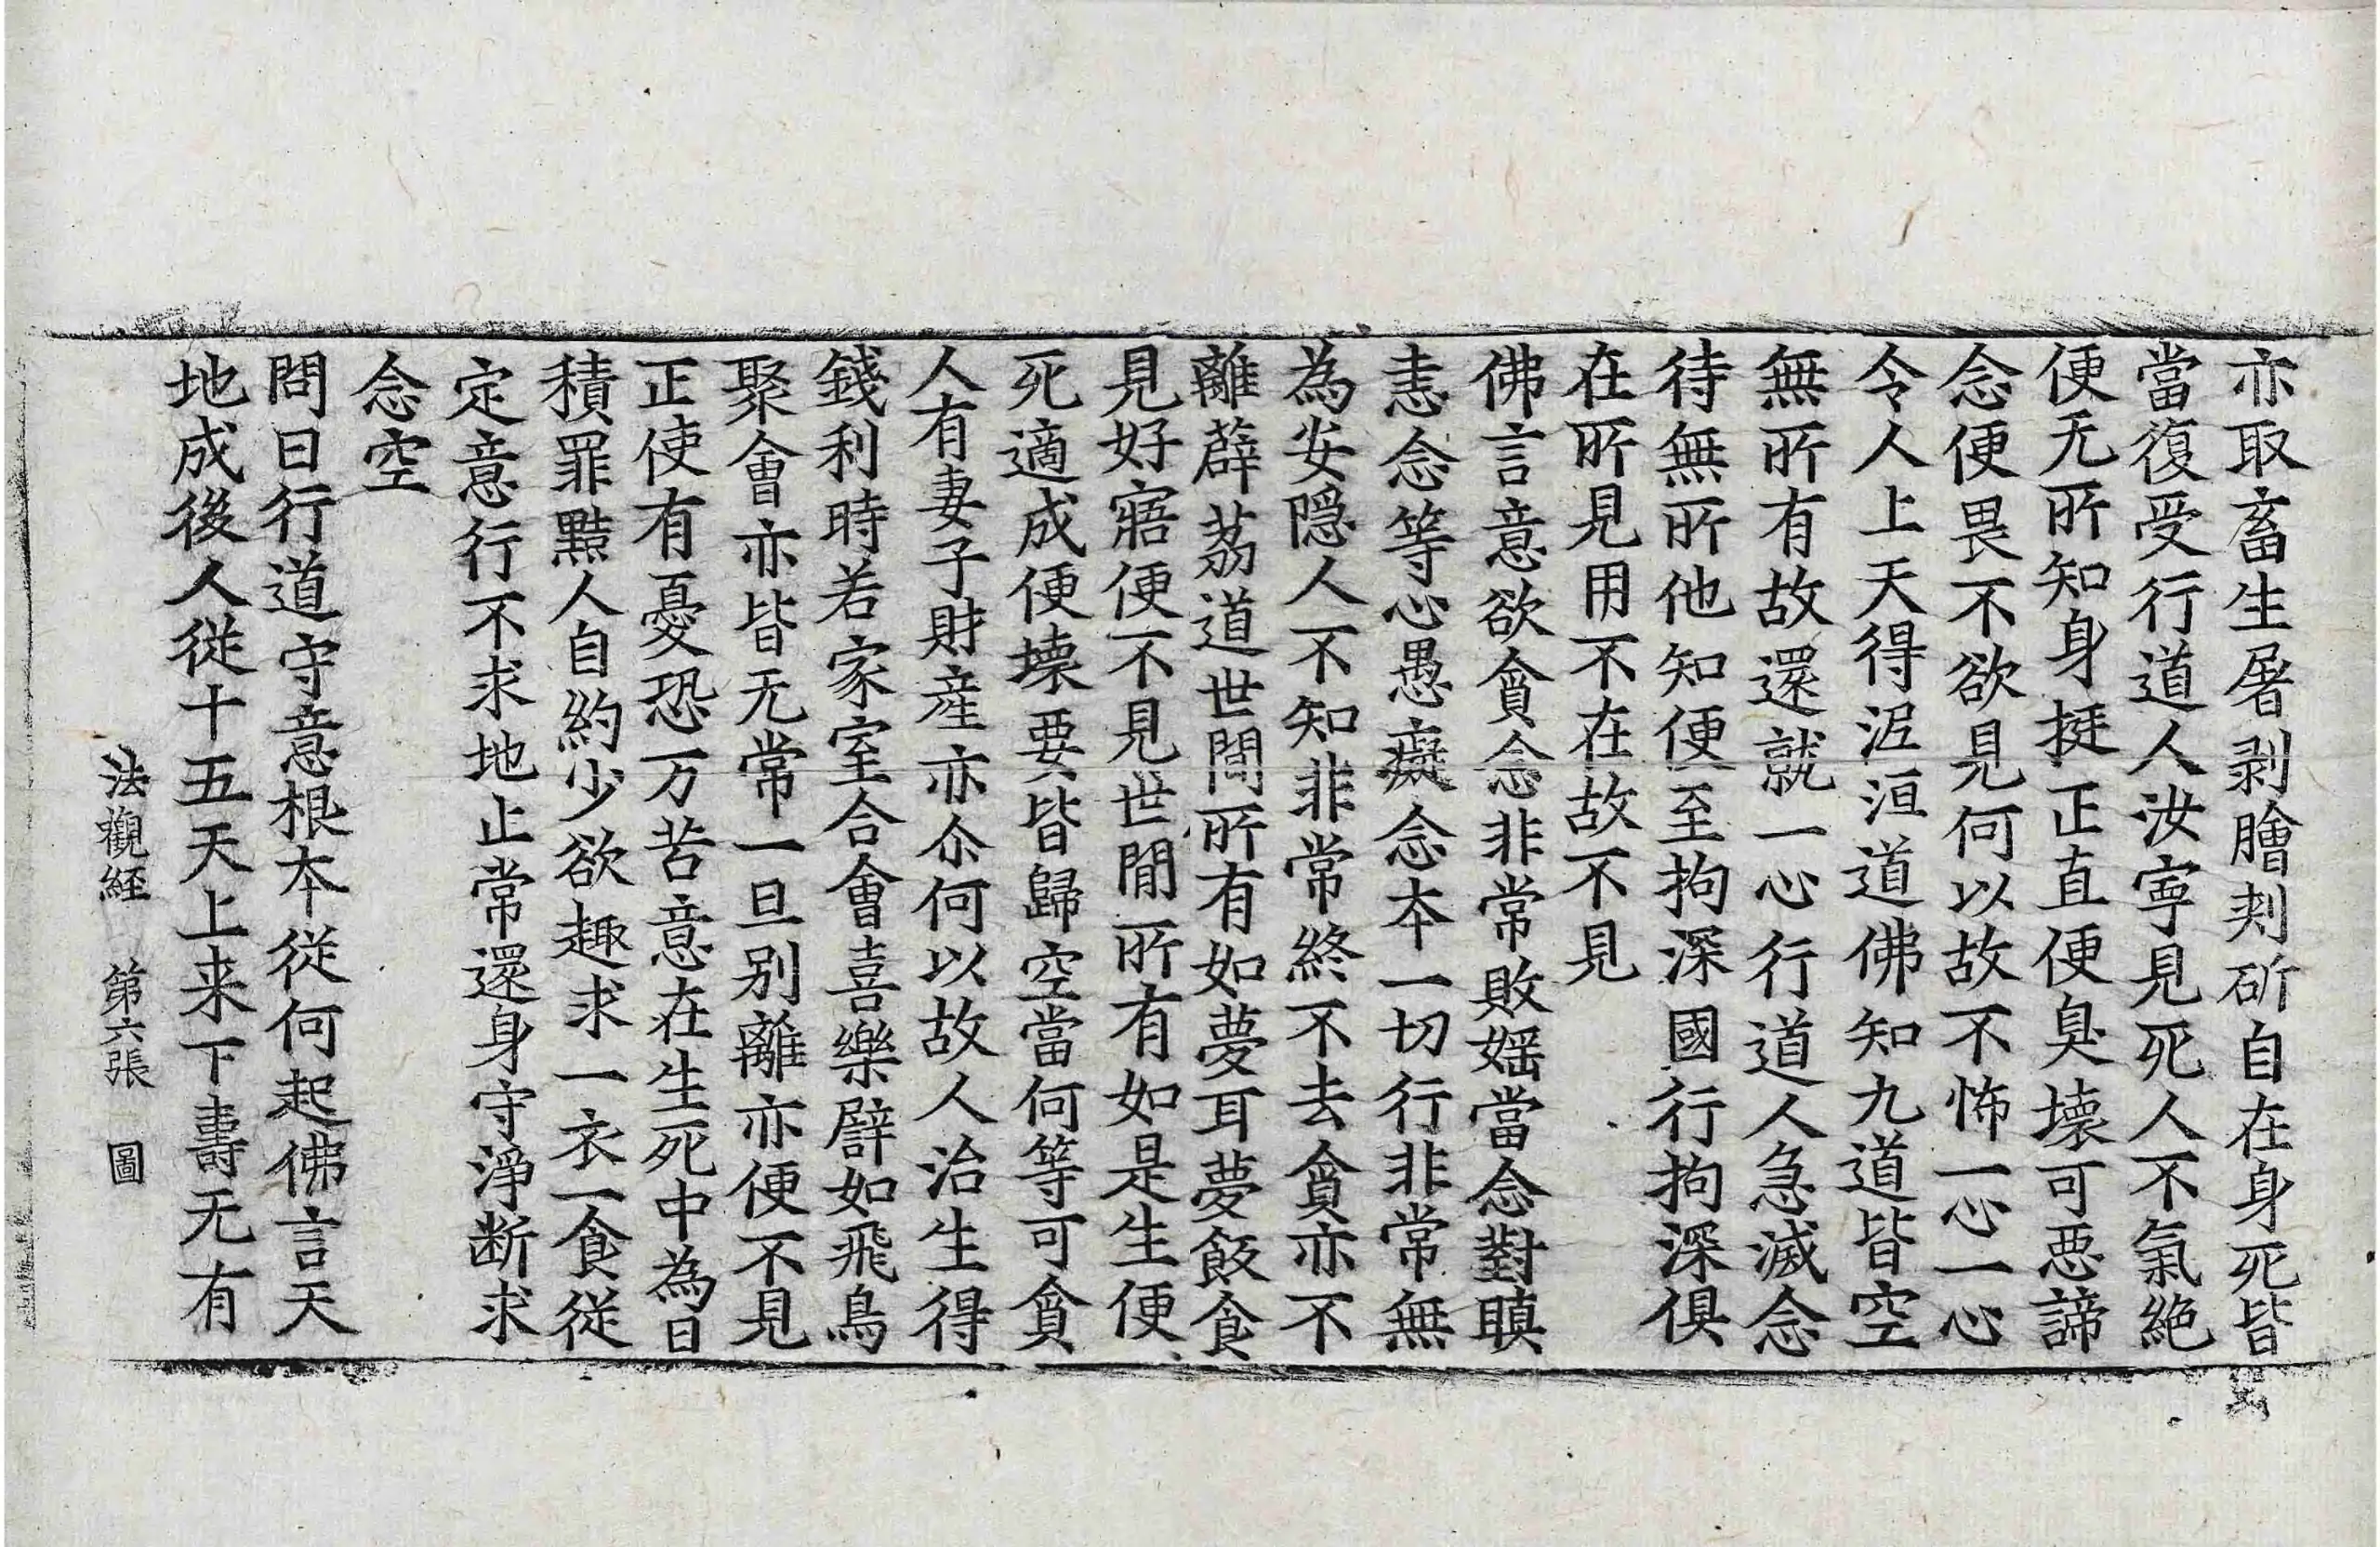 亦取畜生屠剥膾刾斫自在身死皆
當復受行道人汝寧見死人不氣絶
便无所知身挺正直便臭壞可惡諦
念便畏不欲見何以故不怖一心一心
令人上天得泥洹道佛知九道皆空
無所有故還就一心行道人急滅念
待無所他知便至拘深國行拘深俱
在所見用不在故不見
佛言意欲貪念非常敗婬當念對瞋
恚念等心愚癡念本一切行非常無
為安隱人不知非常終不去貪亦不
離薜荔道世間所有如夢耳夢飯食
見好寤便不見世間所有如是生便
死適成便壞要皆歸空當何等可貪
人有妻子財産亦尒何以故人治生得
錢利時若家室合會喜樂譬如飛鳥
聚會亦皆无常一旦別離亦便不見
正使有憂恐万苦意在生死中為日
積罪黠人自約少欲趣求一衣一食從
定意行不求地止常還身守淨断求
念空
問曰行道守意根本從何起佛言天
地成後人從十五天上来下壽无有
法觀経 第六張 圖